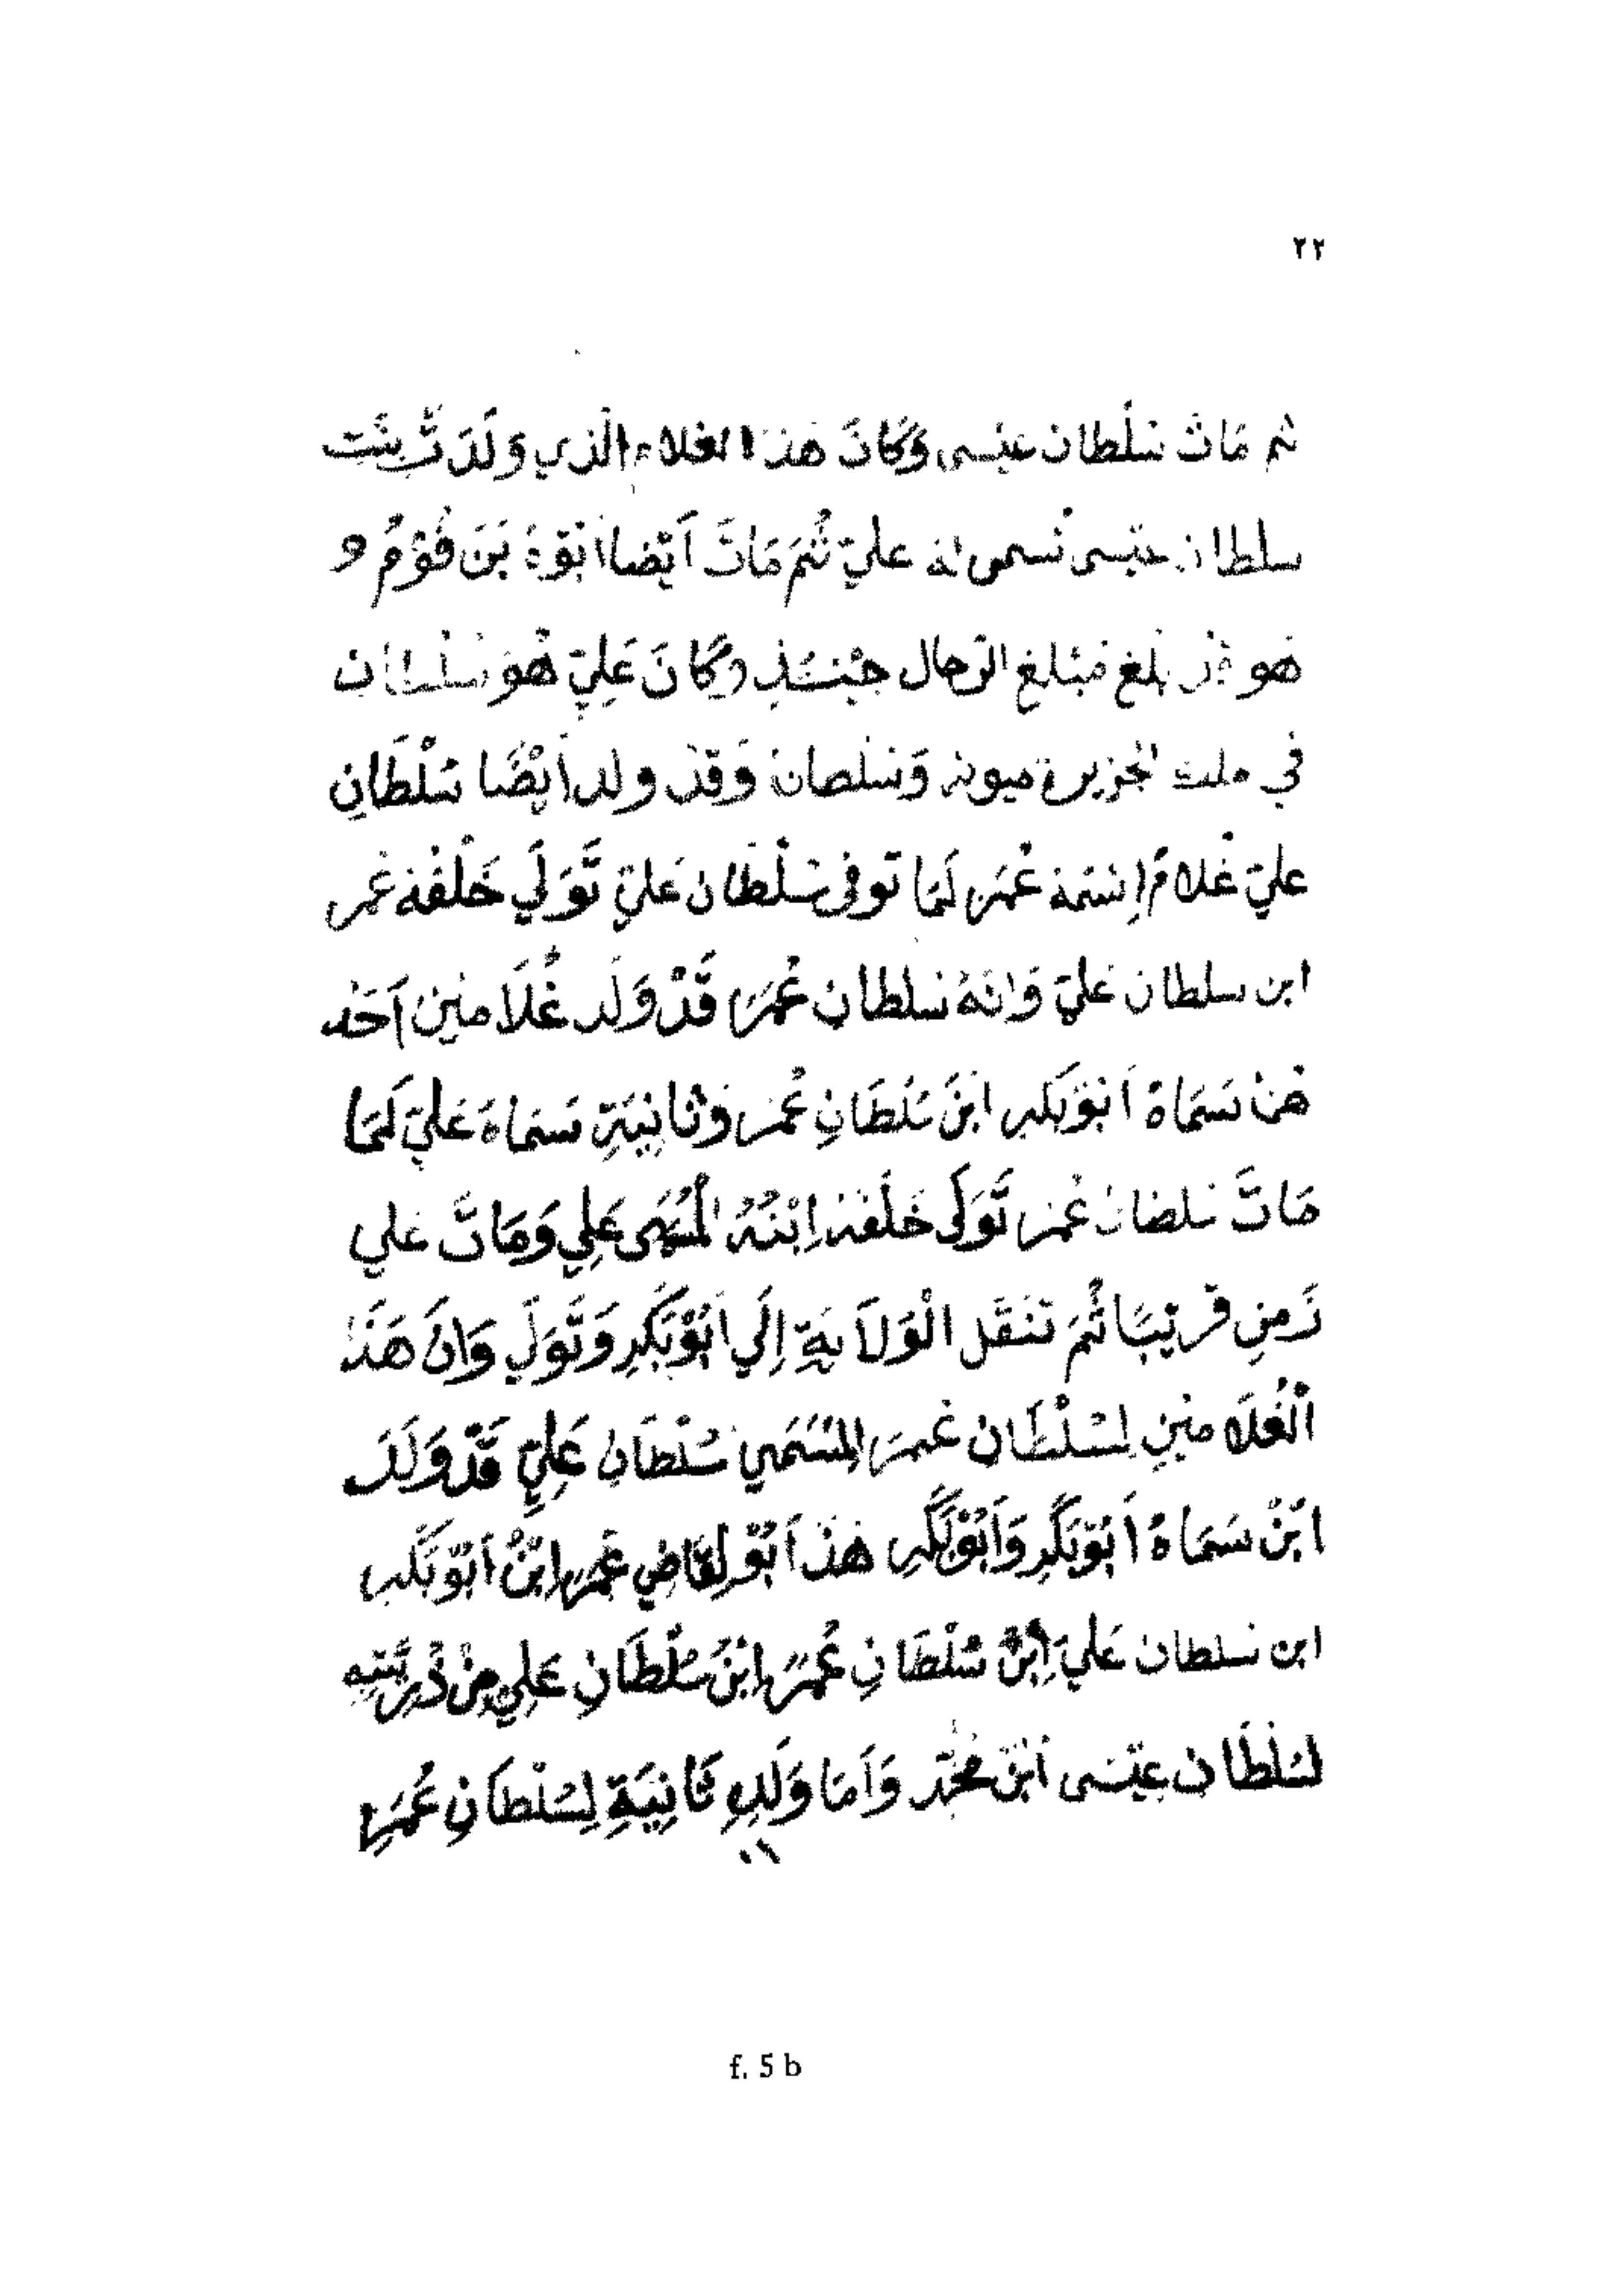 ٢٢
ثم مَاتَ سُلْطان عيسى وَكَانَ هَذا الغلام الَّذي وَلَدَتْ بِنْت
سلطان عيسى تسمى له عليّ ثُمَّ مَاتَ أَيْضا ابُوهُ بَنَ قُوْمُ و
هو قد بلغ مَبْلغ الرِّجال حِيْنَئِذٍ وَكَانَ عَلِيّ هُوَ سُلْطَان
في ملك الجزيرة ميوته وَسلطان وَقَدْ ولد أَيْضًا سُلْطَانِ
عليّ غُلامٌ إسْمُهُ عُمَر لَمَا توفى سُلْطَان عَليّ تَّوَلَّي خَلْفَهُ عُمر
ابن سلطان عَليّ وَانَهُ سلطان عُمَرَ قَدْ وَلَد غُلَامَيْنِ اَحَد
هُمْ سَمَاهُ أَبُوبَكْرِ ابْنَ سُلْطَانِ عُمَر وَثَانِيَةِ سَمَاهُ عَليّ لَمَا
مَاتَ سلطان عُمَر تَّوَلَى خَلْفَهُ إِبْنُهُ الْمُسَمَى عَلِي وَمَاتَ عَلي
زَمنِ قَرِيْبًا ثُمَّ تَنَقَل الْوَلَايَةِ إِلَي اَبُوْبَكْرِ وَتَّوَلَي وَانَ هَذَا
اَلْغُلَامَيْنِ لِسُلْطَان عُمَرَ المُسَمَي سُلْطَانِ عَلِيٍّ قَدْ وَلَدَ
ابْنُ سَمَاهُ أَبُوْبَكْرِ وَأَبُوْبَكْرِ هَذَ اَبُوْ لِقَاضِي عُمَر ابْنُ أَبُوْبَكْرِ
ابن سلطان عَليّ إِبْنُ سُلْطَانِ عُمَرَ ابْنُ سُلْطَانِ عَلِيٍ مِنْ ذُرِيَّتِهِ
لسُلْطَان عِيْسَى ابْنُ مُحَمَّد وَأَمَا وَلَدِ ثَانِيَةِ لِسُلْطَانِ عُمَرِ
f. 5 b